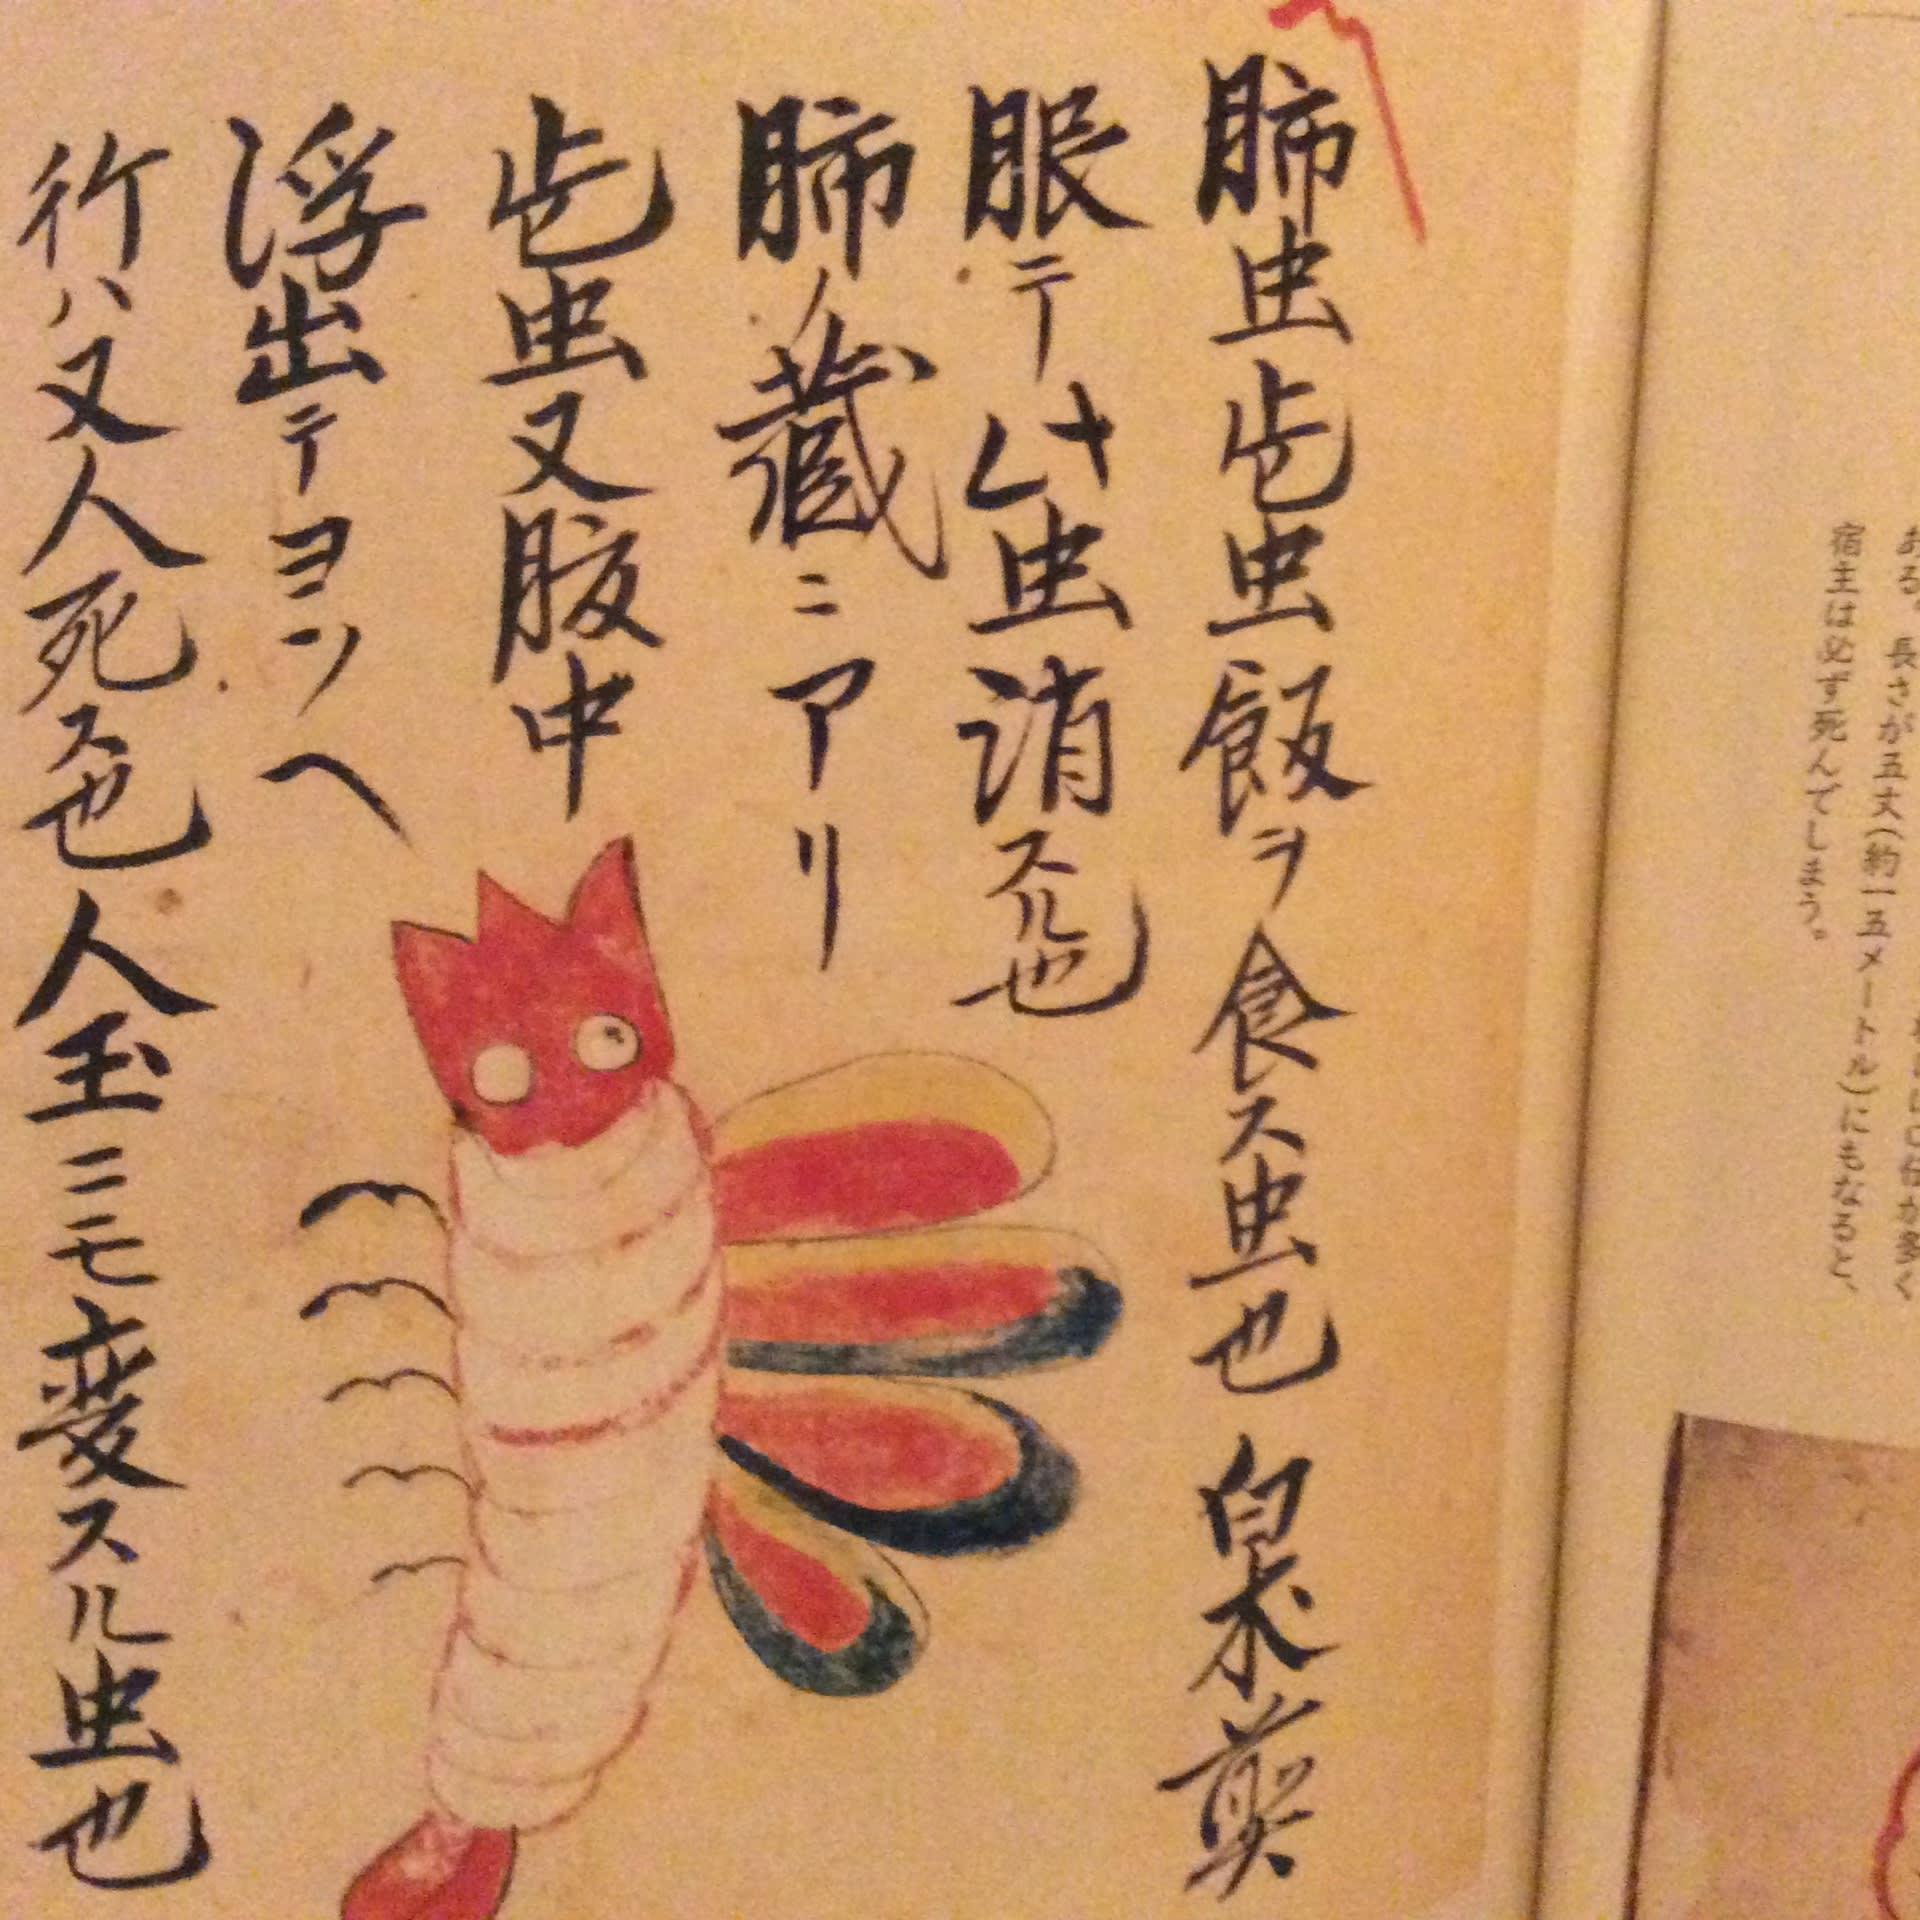 おる。
長さが五丈(約一五メートル)にもなると、
宿主は必ず死んでしまう。
肺虫此虫飯ヲ食ス虫也 白朮煎
眼テ此虫消スル也
肺ノ藏ニアリ
此虫又腹中
浮出テヨソヘ
行ハ又人死ス也人玉ニモ變スル虫也